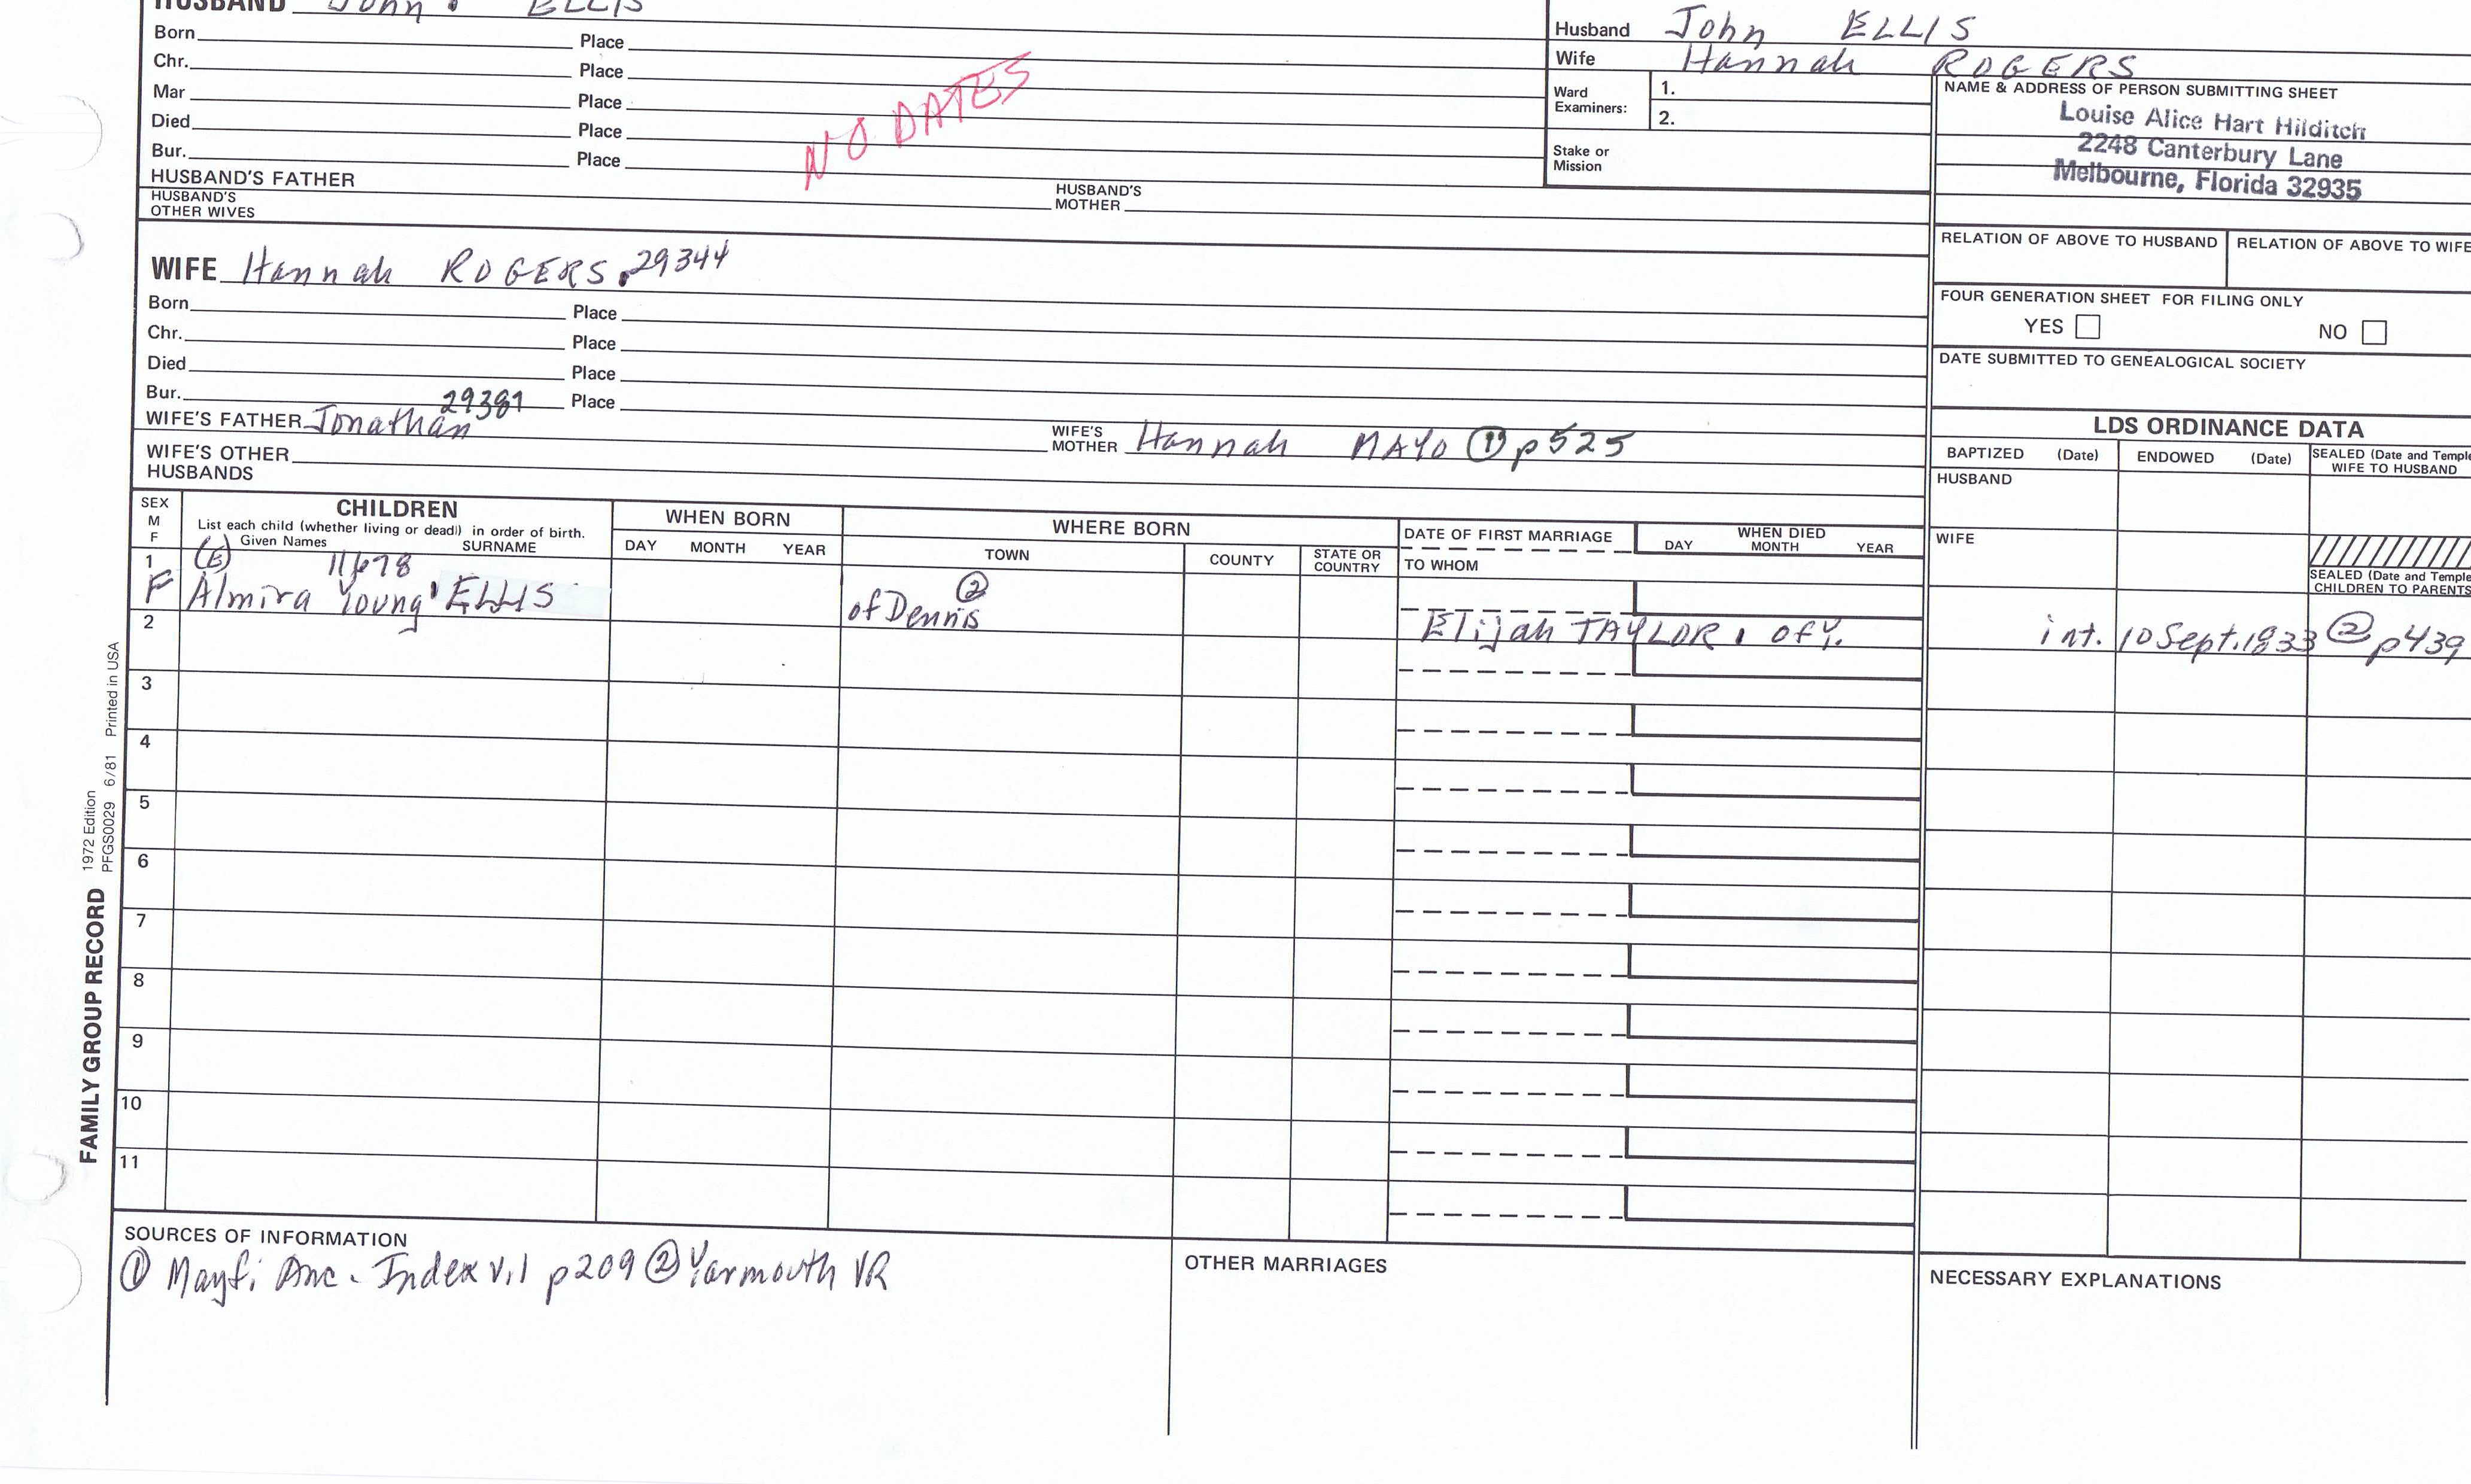 HUSBAND John. ELLIS
Born Place
Chr. Place
Mar Place
Died Place
Bur. Place
NO DATES
HUSBAND'S FATHER
HUSBAND'S MOTHER
HUSBAND'S OTHER WIVES
Husband John ELLIS
Wife Hannah ROGERS
Ward Examiners: 1.
2.
Stake or Mission
NAME & ADDRESS OF PERSON SUBMITTING SHEET
Louise Alice Hart Hilditch
2248 Canterbury Lane
Melbourne, Florida 32935
RELATION OF ABOVE TO HUSBAND RELATION OF ABOVE TO WIFE
FOUR GENERATION SHEET FOR FILING ONLY
YES NO
DATE SUBMITTED TO GENEALOGICAL SOCIETY
WIFE Hannah ROGERS. 29344
Born Place
Chr. Place
Died Place
Bur. Place
29381
WIFE'S FATHER Jonathan
WIFE'S MOTHER Hannah MAYO ① p525
WIFE'S OTHER HUSBANDS
LDS ORDINANCE DATA
BAPTIZED (Date) ENDOWED (Date) SEALED (Date and Temple
WIFE TO HUSBAND
HUSBAND
WIFE
SEALED (Date and Temple
CHILDREN TO PARENTS
SEX M F
CHILDREN
List each child (whether living or dead) in order of birth.
Given Names SURNAME
WHEN BORN
DAY MONTH YEAR
WHERE BORN
TOWN COUNTY STATE OR COUNTRY
DATE OF FIRST MARRIAGE
TO WHOM
WHEN DIED
DAY MONTH YEAR
1 (E) 11678
F Almira Young ELLIS of Dennis ②
Elijah TAYLOR. of Y. int. 10 Sept. 1833 ② p439
2
3
4
5
6
7
8
9
10
11
FAMILY GROUP RECORD 1972 Edition
PFGS0029 6/81 Printed in USA
SOURCES OF INFORMATION
① Mayf. Anc. Index v.1 p209 ② Yarmouth VR
OTHER MARRIAGES
NECESSARY EXPLANATIONS